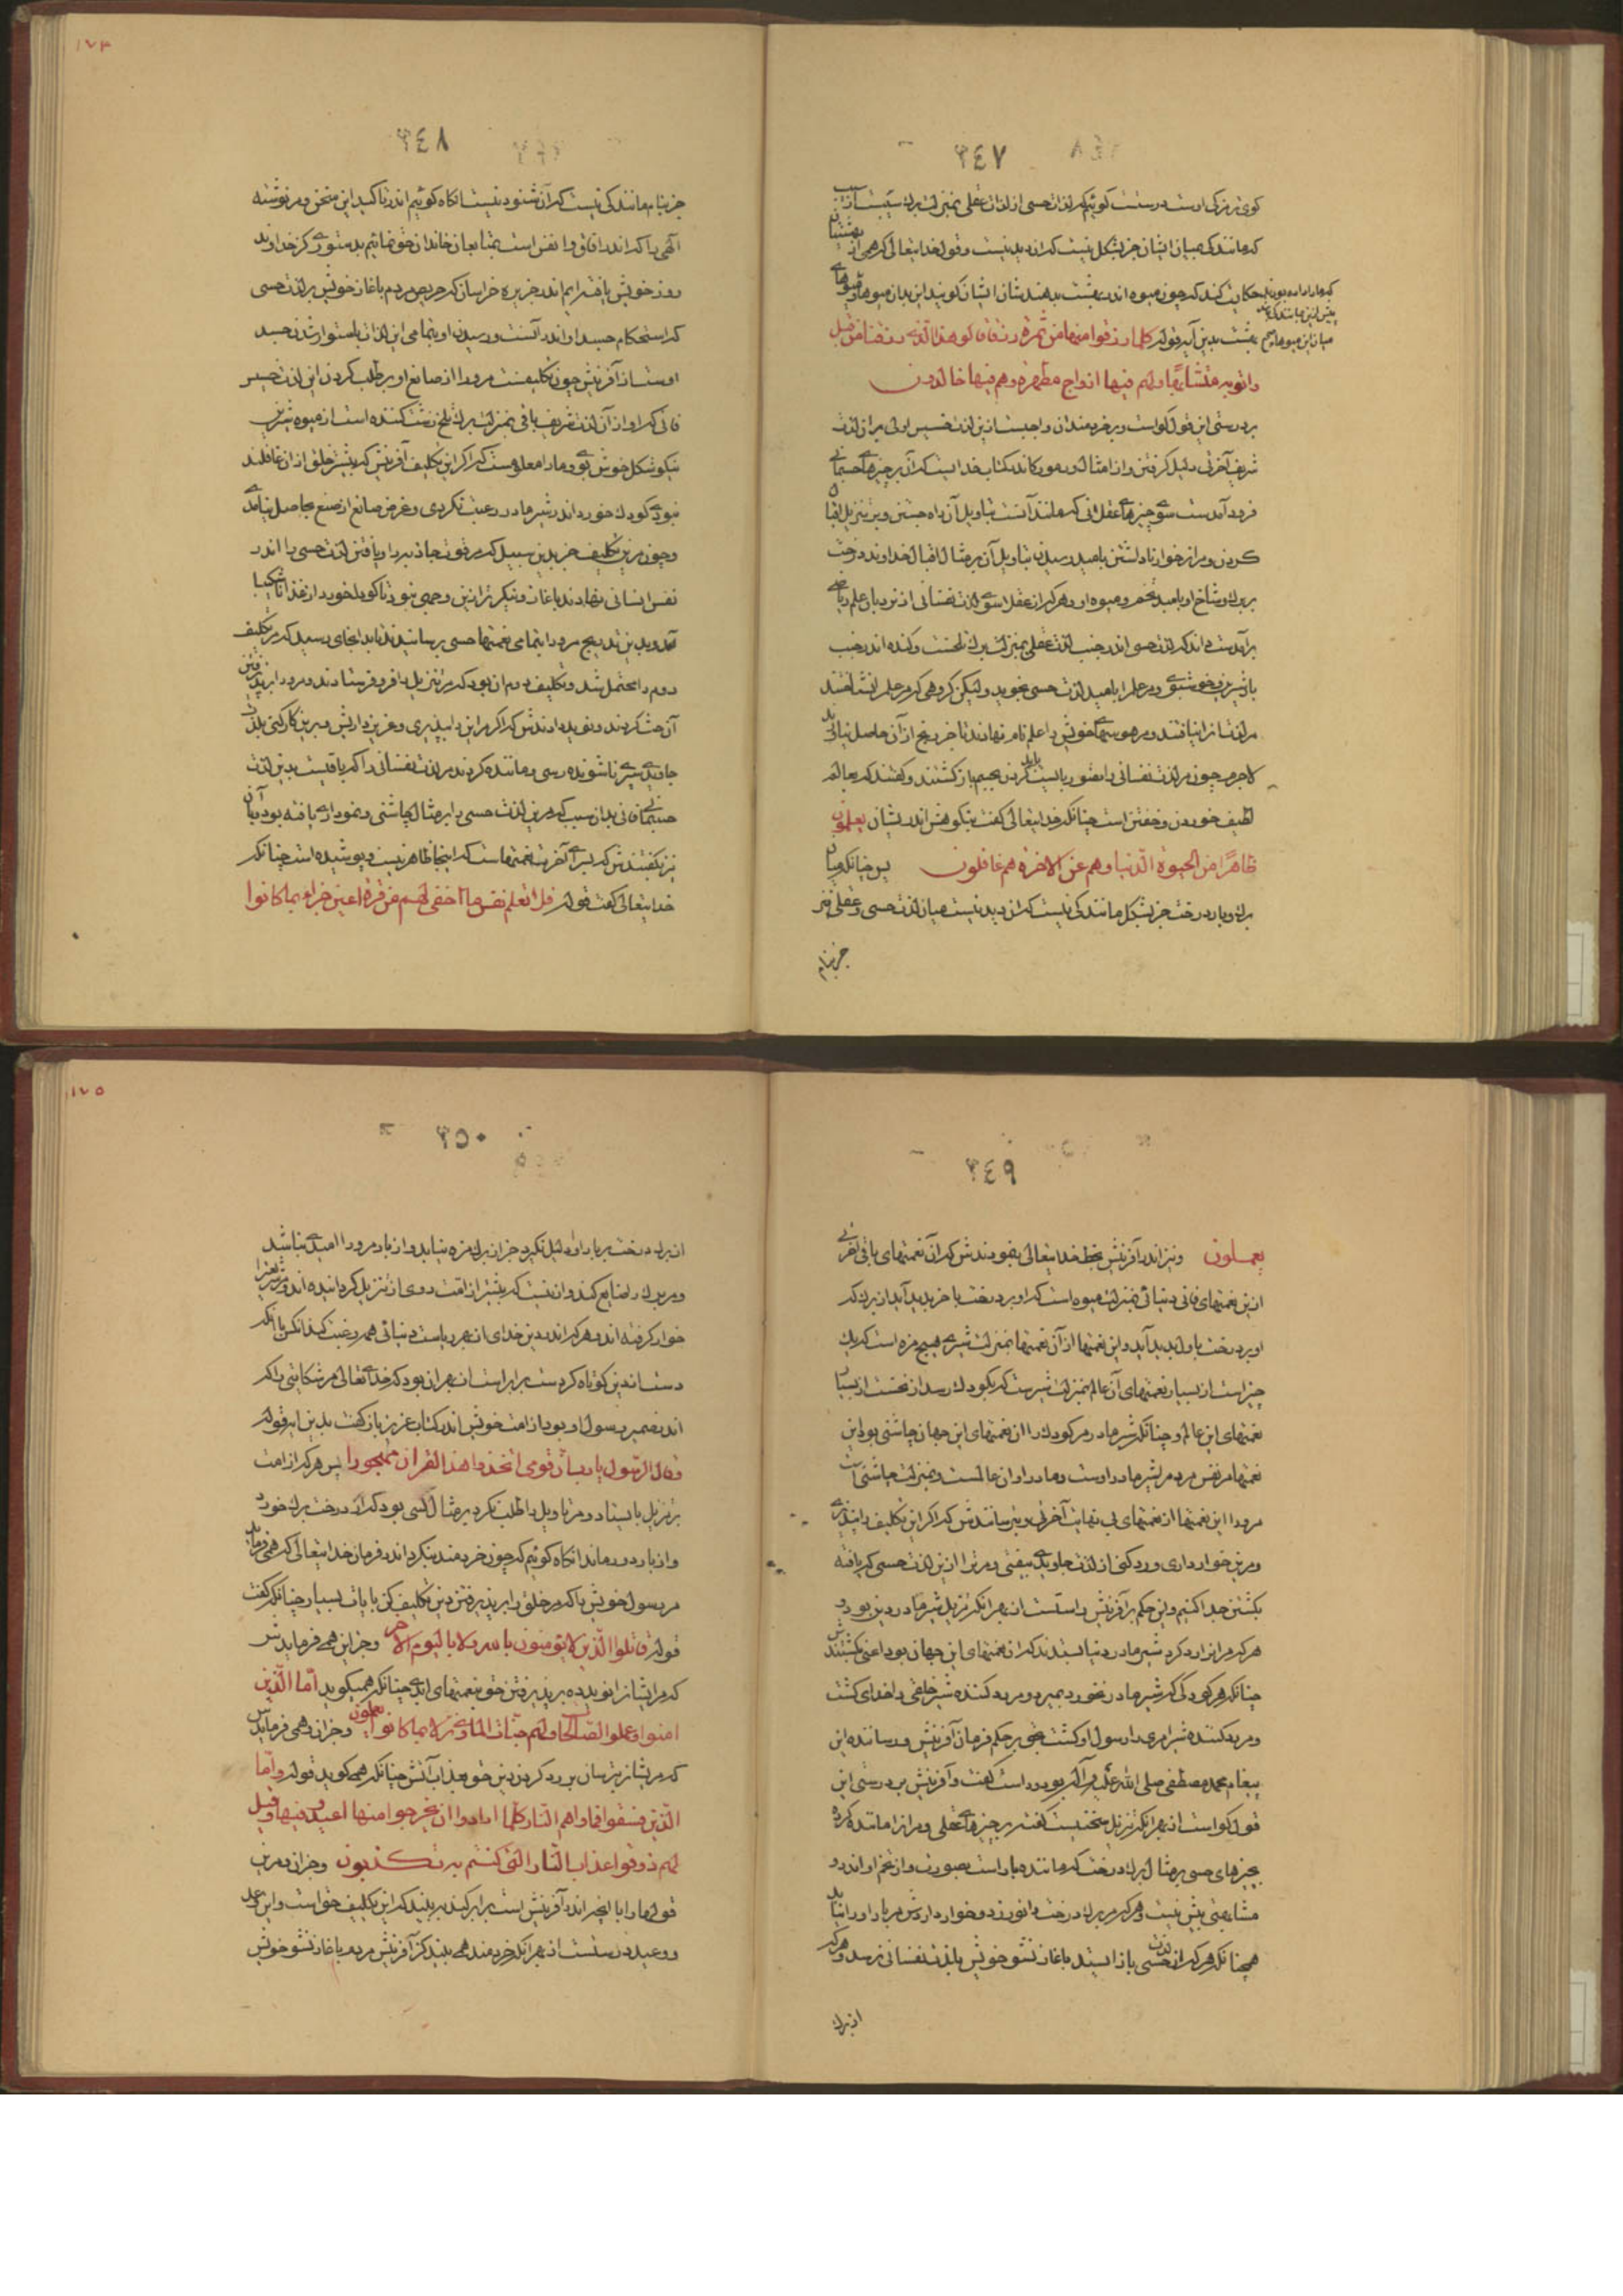 ٣٤٧
کوی نو بزرگ اوست درستست کوئیم کر لذات حسی از لذات عقلی بمنزلت برك
که مانندگی میان ایشان جز بشکل نیست که ان دیدنیست و قول خدایتعالی که همی از بهشتیان
حکایت کند که چون میوه اندر بهشت بدهندشان ایشان کویند این بدان میوها
بهشت بدین آیه قوله كلما رزقوا منها من ثمرة رزقا قالوا هذا الذی رزقنا من قبل
واتوبه متشابها ولهم فیها ازواج مطهرة وهم فیها خالدون
بر درستی این قول کواست و بر خردمندان واجبست ازین لذت خسیس اولی بران لذت
شریف آخرتی دلیل کرفتن و از امثال و رموز کاندر کتاب خدایست که آن بر چیزهاے جسمانی
فرود آمدست سوے چیزهاے عقلانی که مانند آنست بتاویل آن راه جستن و بر تنزیل
کردن و مر از خوار ناداشتن بامید رسیدن بتاویل آن بر مثال اقبال خداوند درخت
بر برك و شاخ او بامید تخم و میوه او و هر که از عقلا سوے لذت نفسانی از نردبان علم ریاضی
برآمدست داند که لذت حسی اندر جنب لذت عقلی بمنزلت برك
و مر علم را بامید لذت حسی نجوید ولیکن کروهی که مر علم را نشناختند
مر لذت از نیافتند و مر هوسهاے خویش را علم نام نهادند تا جز رنج از آن حاصل نیاید
لاجرم چون مر لذت نفسانی را بصورت بایست کردن بجسم باز کشتند و کفتند که عالم
لطیف خوردن و خفتن است چنانکه خدایتعالی کفت بنکوهش اندر ایشان یعلمون
ظاهرا من الحیوة الدنیا وهم عن الاخرة هم غافلون پس چنانکه میان
برك و بار درخت جز بشکل مانندگی نیست که ان دیدنیست میان لذت حسی و عقلی نیز
جز بنام
١٧٣
٣٤٨
جز بنام مانندگی نیست که آن شنودنیست انکاه کوئیم اندر تاکید این سخن و مر نوشته
الهی را که اندر افاق و انفس است بمتابعان خاندان حق نمائیم بدستورے کز خداوند
روز خویش یافته ایم اندر جزیره خراسان که حرص مردم باغاز خویش بر لذت حسی
که استحکام جسد او اندر آنست و رسیدن او بتمامی این لذات باستوار شدن جسد
اوست از آفرینش چون تکلیفست مرورا از صانع او بر طلب کردن این لذت خسیس
فانی که او از آن لذت شریف باقی بمنزلت برك تلخ زشت کننده است از میوه شیرین
نیکو شکل خوش بوے و ما را معلومست که اکر این تکلیف آفرینش که بیشتر خلق از ان غافلند
نبودے کودك خورد اندر شیر مادر رغبت نکردی و غرض صانع از صنع بحاصل نیامدے
و چون مرین تکلیف جز بدین سبیل که مر قوت جاذبه را و یافتن لذت حسی را اندر
نفس انسانی نهادند باغاز و نیکوتر ازین وجهی نبود تا کودك خورد از غذا ناشکیبا
آمد و بدین تدریج مرورا بتمامی نعمتها حسی برسانیدند تا بدانجای رسید که مر تکلیف
دوم را محتمل شد و تکلیف دوم ان بود که مر تنزیل را فرو فرستادند و مرورا بر پذیرفتن
آن حث کردند و نوید دادندش که اکر مر این را بپذیری و عزیز داریش و برین کار کنی بلذت
جاویدے نا شونده رسی و مانند کردند مر لذت نفسانی را که باقیست بدین لذت
جسمانی فانی بدان سبب که مرین لذت حسی را بر مثال چاشنی و نمودارے یافته بود و با آن
نیز بکفتندش که براے آخرت نعمتهاست که اینجا ظاهر نیست و پوشیده است چنانکه
خدایتعالی کفت قوله فلا تعلم نفس ما اخفی لهم من قرة اعین جزاء بما کانوا
٣٤٩
یعملون و نیز اندر آفرینش بخط خدایتعالی بنمودندش که آن نعمتهای باقی اخرتی
ازین نعمتهای فانی دنیائی بمنزلت میوه است که او بر درخت باخر پدید آید از برك که
او بر درخت باول پدید آید و این نعمتها از آن نعمتها بمنزلت شیرے هیچ مزه است که یك
چیز است از بسیار نعمتهای آن عالم بمنزلت شیر است که بکودك رسد از نخست از بسیار
نعمتهای این عالم و چنانکه شیر مادر مر کودك را از نعمتهای این جهان چاشنی بود این
نعمتها مر نفس مردم را شیر مادر اوست و مادر او ان عالمست و بمنزلت چاشنی است
مرورا این نعمتها از نعمتهای بی نهایت آخرتی و بترسانندش که اکر این تکلیف را نپذیرے
و مرین خوار داری و رد کنی از لذت جاویدے بیفتی و مر ترا ازین لذت حسی که یافته
بکشتن جدا کنیم و این حکم بر آفرینش راستست از بهر انکه تنزیل شیر مادر دین بود و
هر که مر انرا رد کرد شیر مادر دنیا بستدند که از نعمتهای این جهان بود اعنی بکشتندش
چنانکه هر کودکی که شیر مادر نخورد بمیرد و مر رد کننده شیر خلقی را خدای کشت
و مر رد کننده شیر امری را رسول او کشت بحق بر حکم فرمان آفرینش و رسانیده این
پیغام محمد مصطفی صلی الله علیه و آله بود و راست کفت و آفرینش بر درستی این
قول کواست از بهر آنکه تنزیل سخنیست کفته بر چیزهاے عقلی و مر از را مانند کرده
بچیزهای حسی بر مثال برك درخت که مانند بار است بصورت و از تخم او اندرو
مشابهتی بیش نیست و هر که مر برك درخت را نورزد و خوار داردش مر بار او را نیابد
همچنانکه هر که از لذت حسی باز ایستد باغاز نشو خویش بلذت نفسانی نرسد و هر که
از برك
١٧٥
٣٥٠
از برك درخت بر بار او دلیل نکیرد جز از برك مزه نیابد و از بار مرورا امیدے نباشد
و مر برك را ضایع کند و از نیست که بیشتر از امت روی از تنزیل کردانیده اند و مر شریعترا
خوار کرفته اند و هر که اندر دین خدای از بهر ریاست دنیائی همی رغبت کند انکس با انکه
دست از دین کوتاه کردست برابر است از بهر ان بود که خداے تعالی مر شکایتی را که
اندر ضمیر رسول او بود از امت خویش اندر کتاب عزیز باز کفت بدین ایه قوله
وقال الرسول یا رب ان قومی اتخذوا هذا القران مهجورا پس هر که از امت
بر تنزیل باستاد و مر تاویل را طلب نکرد بر مثال کسی بود که از درخت برك خورد
و از بار دور ماند انکاه کوئیم که چون خردمند بنکرد اندر فرمان خدایتعالی که همی فرماید
مر رسول خویش را که مر خلق را بر پذیرفتن دین تکلیف کن بایات بسیار چنانکه کفت
قوله قاتلوا الذین لا یؤمنون بالله ولا بالیوم الاخر و جز این همی فرمایدش
که مر ایشانرا نوید ده بر پذیرفتن حق بنعمتهای ابدی چنانکه همیکوید اما الذین
امنوا وعملوا الصالحات فلهم جنات المأوی نزلا بما کانوا یعملون و جز ان همی فرمایدش
که مر ایشانرا بترسان بر رد کردن دین حق بعذاب آتش چنانکه همی کوید قوله واما
الذین فسقوا فمأواهم النار کلما ارادوا ان یخرجوا منها اعیدوا فیها وقیل
لهم ذوقوا عذاب النار التی کنتم به تکذبون و جز ان و مرین
قولها را با انچه اندر آفرینش است برابر کند ببیند که این تکلیف حق است و این وعد
و وعید درستست از بهر آنکه خردمند همی بیند کز آفرینش مردم باغاز نشو خویش